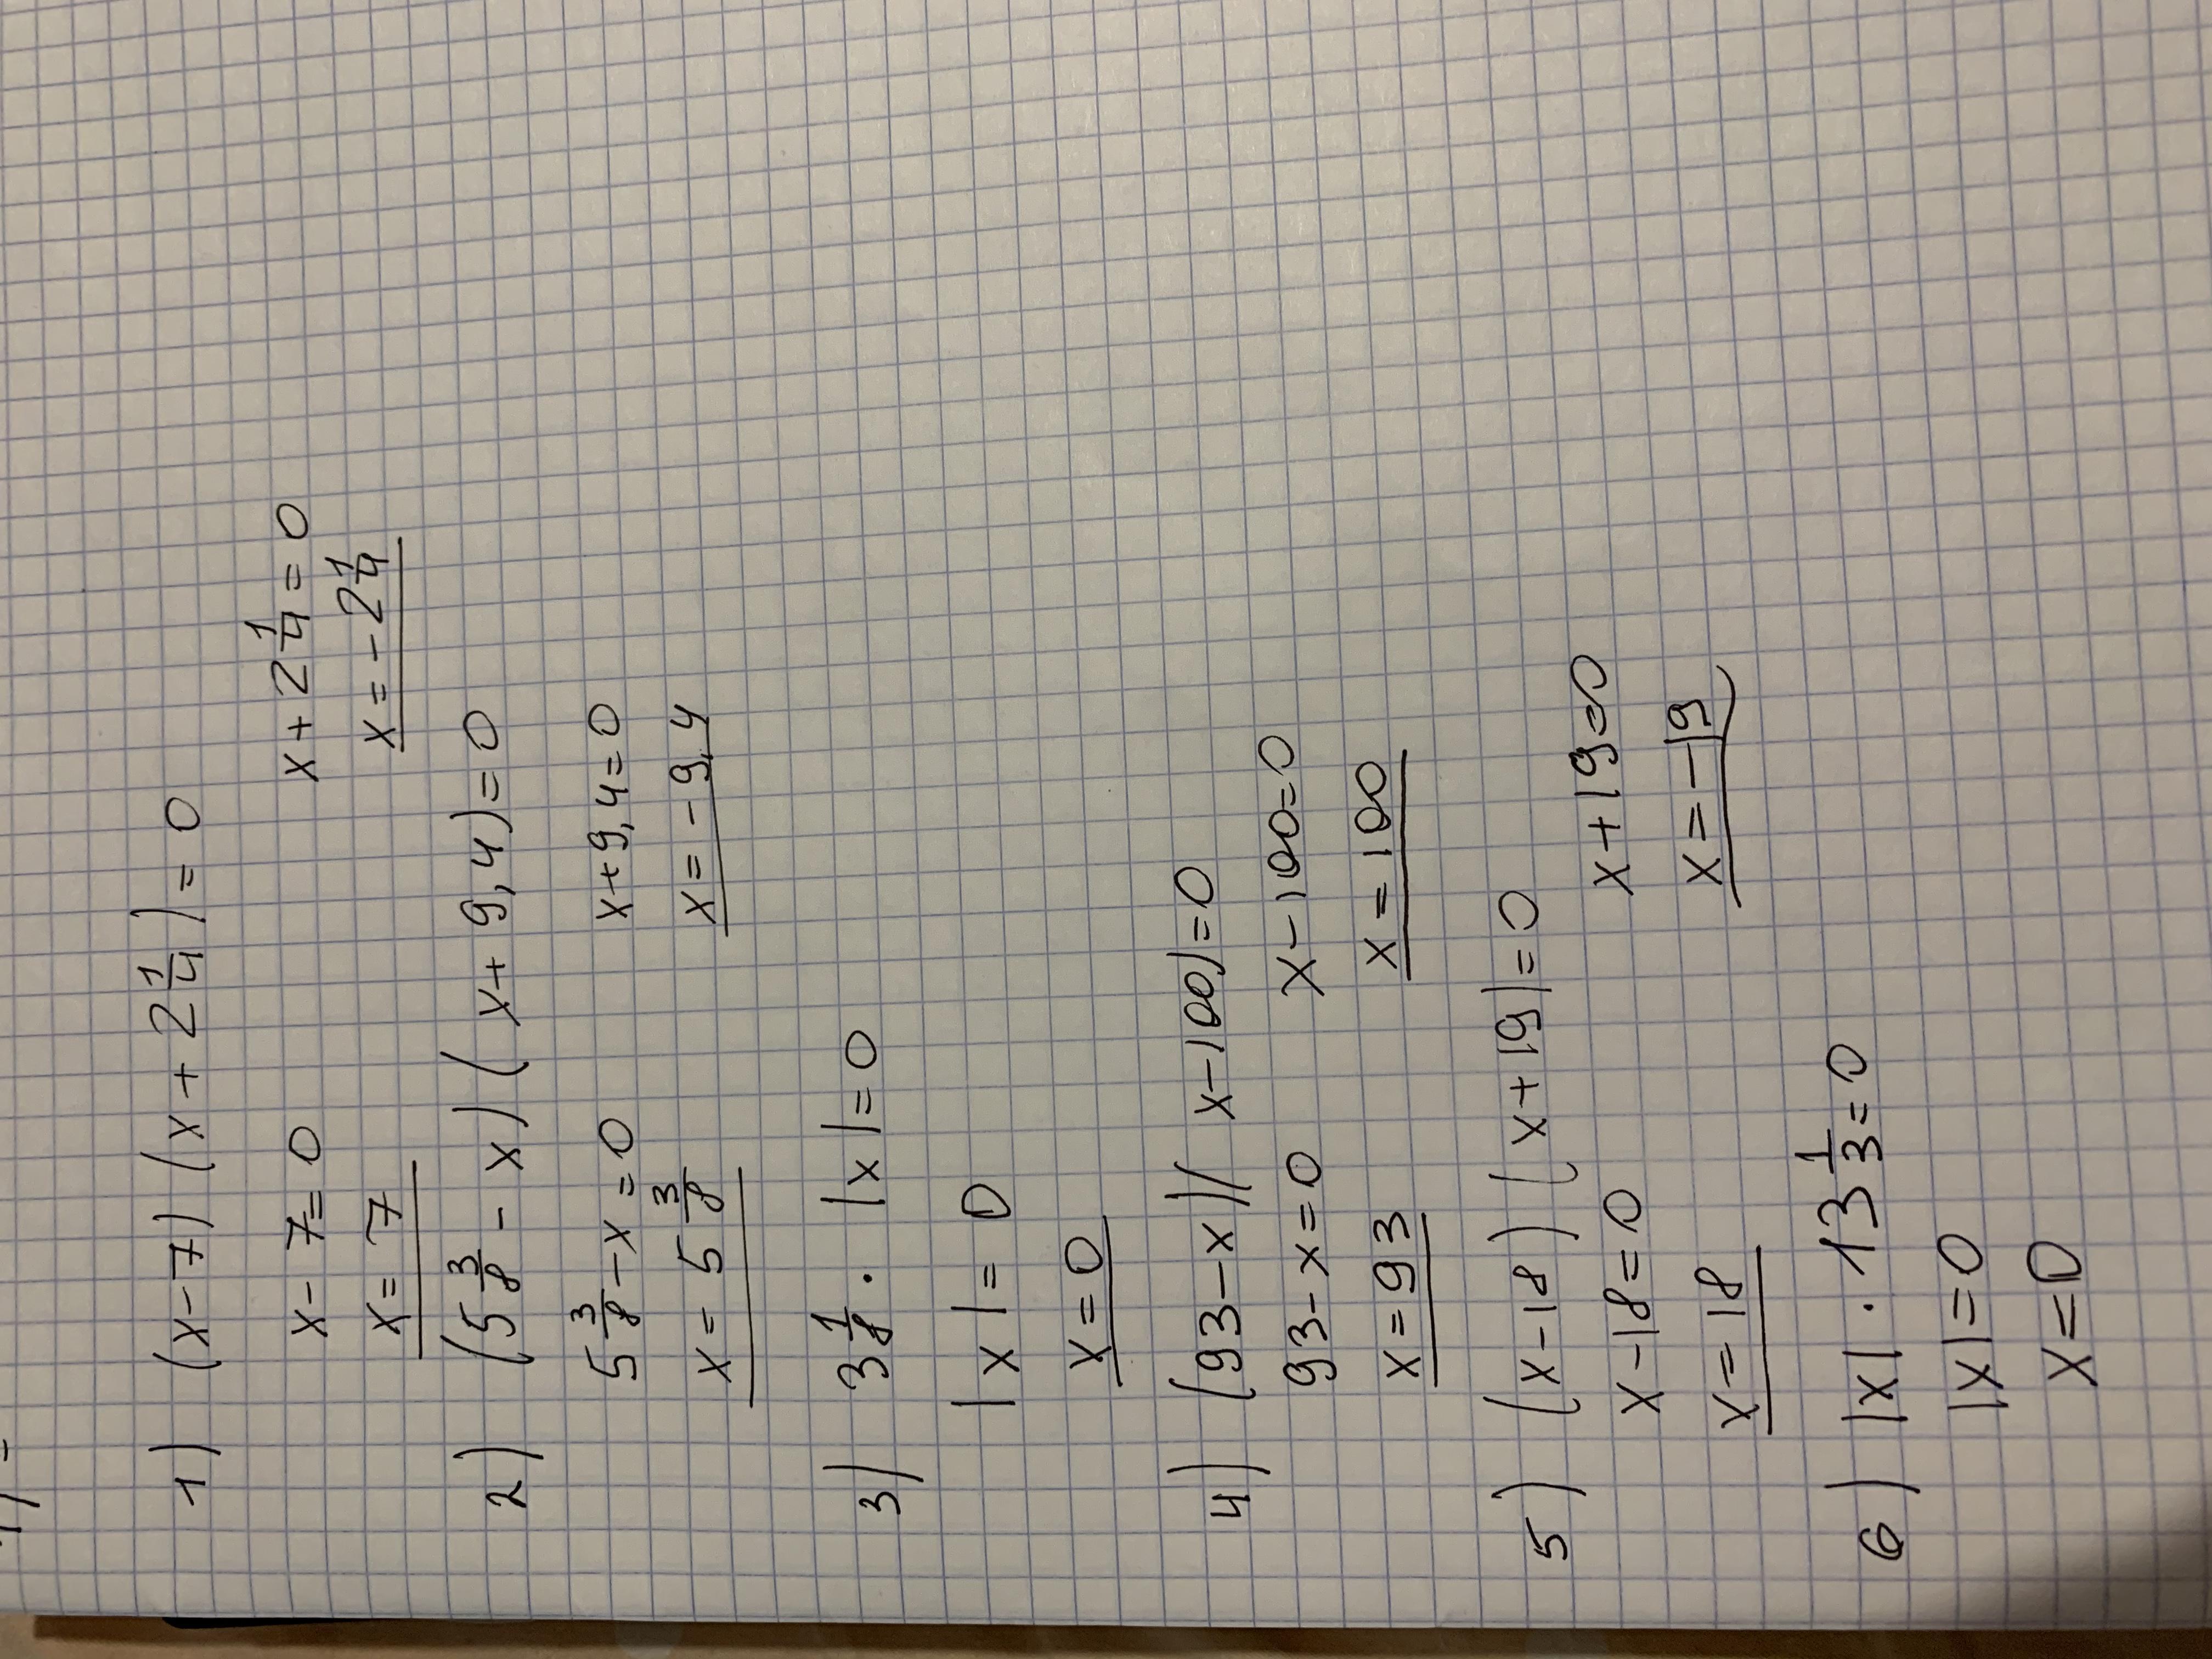 1) (x-7) (x + 2 1/4) = 0
x - 7 = 0 x + 2 1/4 = 0
x = 7 x = - 2 1/4
2) (5 3/8 - x) (x + 9,4) = 0
5 3/8 - x = 0 x + 9,4 = 0
x = 5 3/8 x = - 9,4
3) 3 1/8 · |x| = 0
|x| = 0
x = 0
4) (93 - x)(x - 100) = 0
93 - x = 0 x - 100 = 0
x = 93 x = 100
5) (x - 18) (x + 19) = 0
x - 18 = 0 x + 19 = 0
x = 18 x = - 19
6) |x| · 13 1/3 = 0
|x| = 0
x = 0